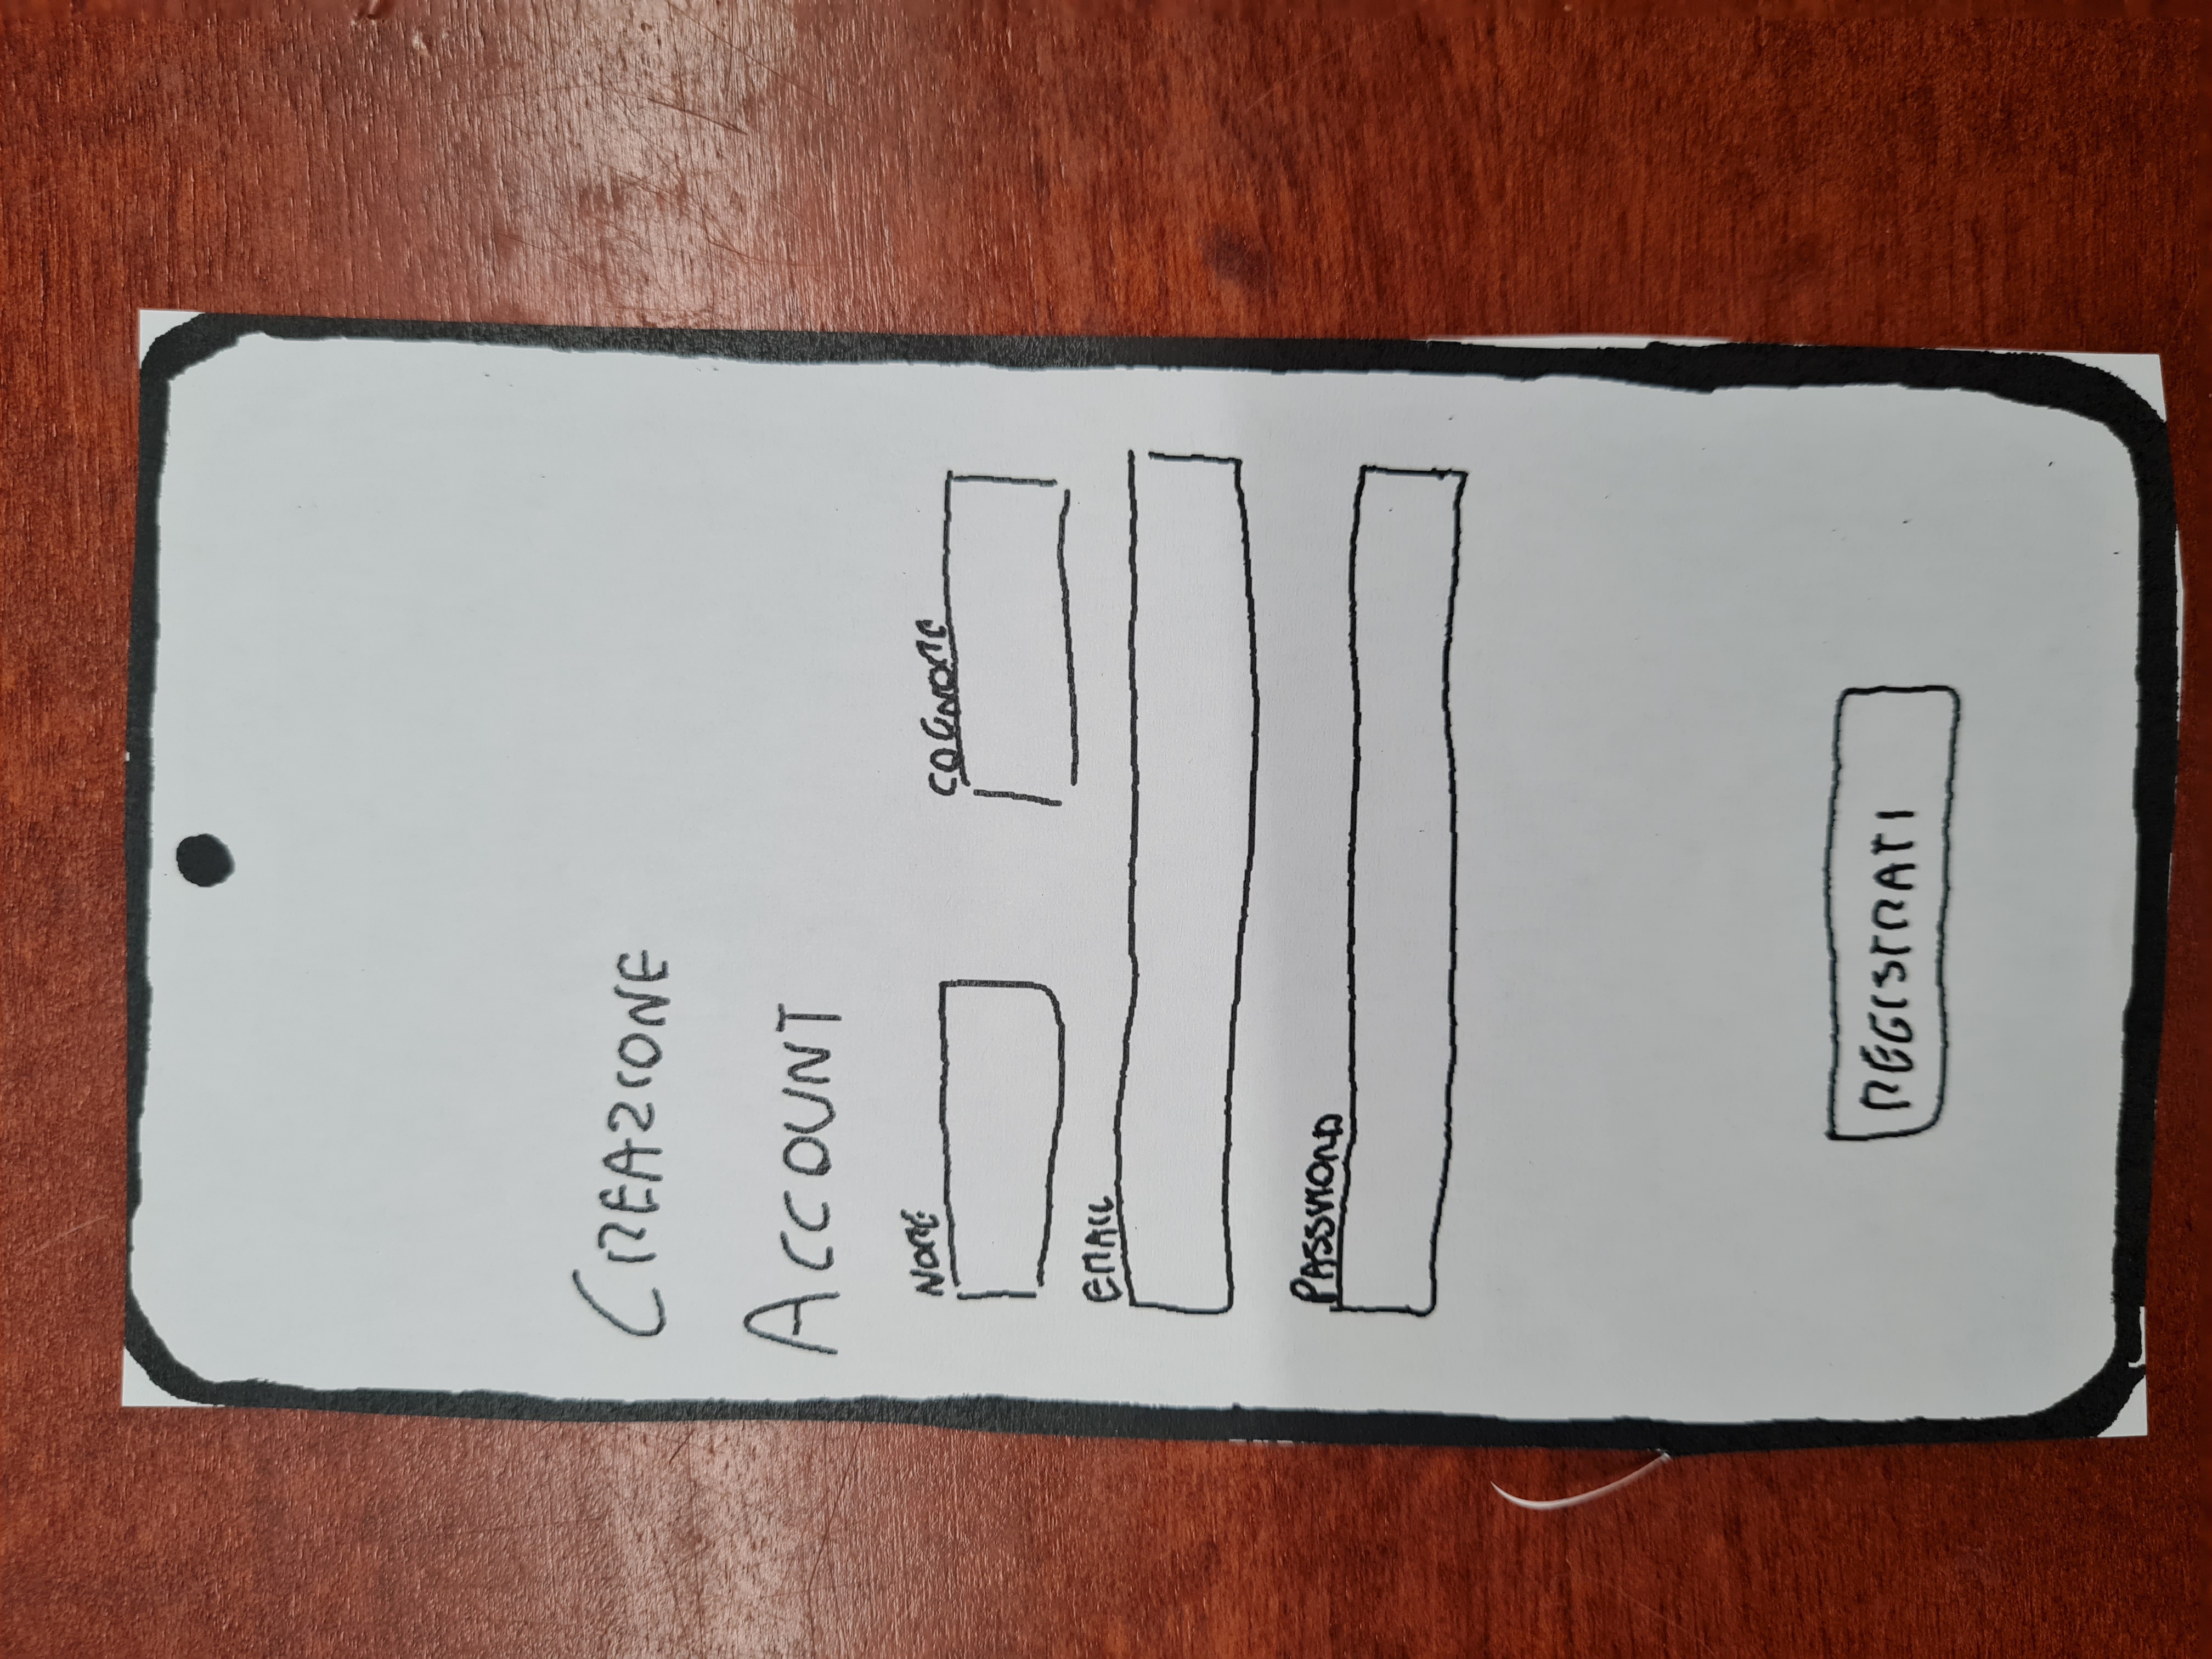 CREAZIONE
ACCOUNT
NOME
COGNOME
EMAIL
PASSWORD
REGISTRATI